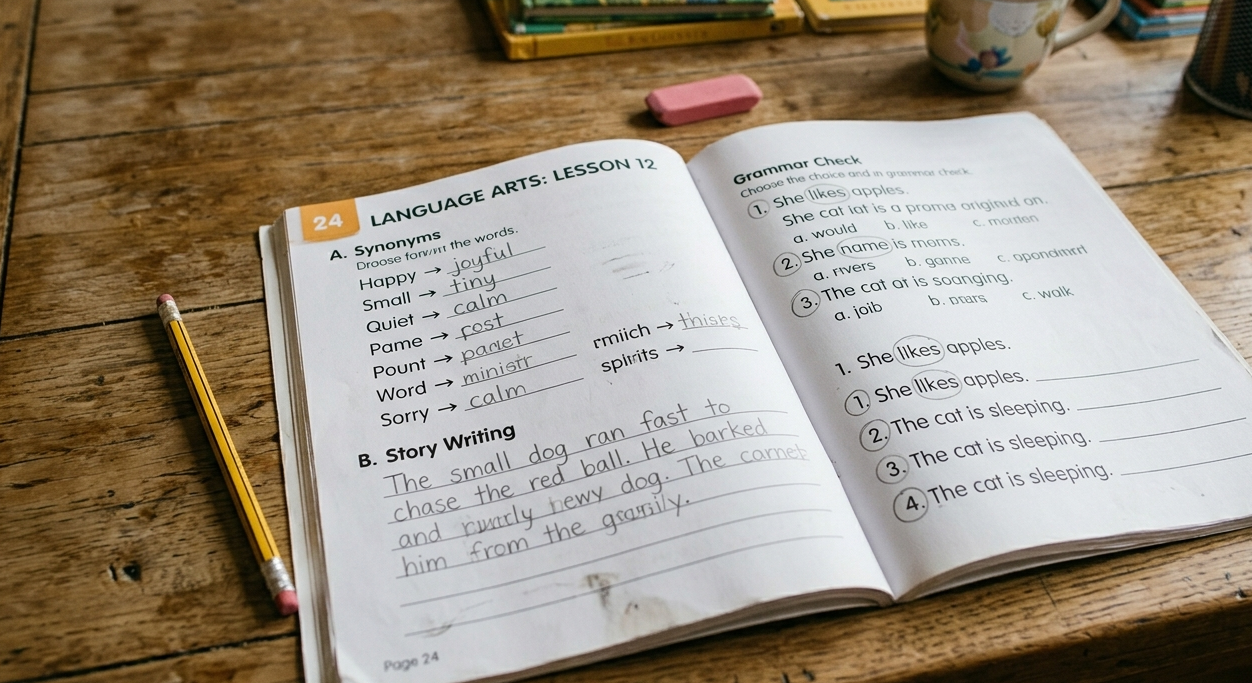 24 LANGUAGE ARTS: LESSON 12
A. Synonyms
the words.
Happy → joyful
Small → tiny
Quiet → calm
Pame → rost
Pount → pariet
Word → ministr
Sorry → calm
rmiich → thisrs
spirits →
B. Story Writing
The small dog ran fast to
chase the red ball. He barked
and hewy dog. The carnet
him from the
Page 24
Grammar Check
Choose the choice and in grammar check.
1. She likes apples.
She cat iat is a proma on.
a. would b. like c.
2. She name is moms.
a. rivers b. ganne c.
3. The cat at is soanging.
a. joib b. c. walk
1. She likes apples.
1. She likes apples.
2. The cat is sleeping.
3. The cat is sleeping.
4. The cat is sleeping.